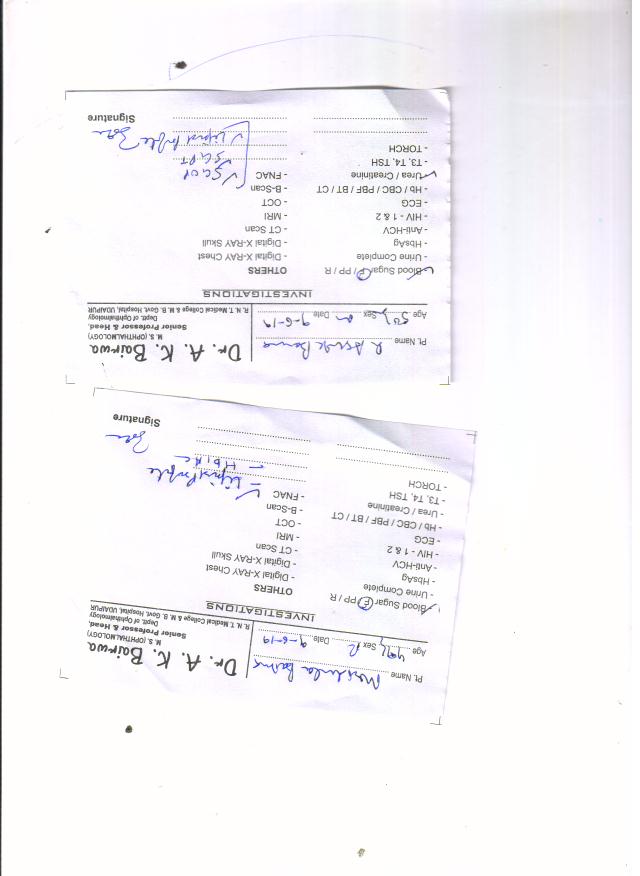 Dr. A. K. Bairwa
M. S. (OPHTHALMOLOGY)
Senior Professor & Head,
Deptt. of Ophthalmology
R. N. T. Medical College & M. B. Govt. Hospital, UDAIPUR
Pt. Name Mridula
Age Sex Date 9-6-19
INVESTIGATIONS
- Blood Sugar F / PP / R
- Urine Complete
- HbsAg
- Anti-HCV
- HIV - 1 & 2
- ECG
- Hb / CBC / PBF / BT / CT
- Urea / Creatinine
- T3, T4, TSH
- TORCH
OTHERS
- Digital X-RAY Chest
- Digital X-RAY Skull
- CT Scan
- MRI
- OCT
- B-Scan
- FNAC
- Lipid Profile
- HbA1c
Signature
Dr. A. K. Bairwa
M. S. (OPHTHALMOLOGY)
Senior Professor & Head,
Deptt. of Ophthalmology
R. N. T. Medical College & M. B. Govt. Hospital, UDAIPUR
Pt. Name
Age Sex m Date 9-6-19
INVESTIGATIONS
- Blood Sugar F / PP / R
- Urine Complete
- HbsAg
- Anti-HCV
- HIV - 1 & 2
- ECG
- Hb / CBC / PBF / BT / CT
- Urea / Creatinine
- T3, T4, TSH
- TORCH
OTHERS
- Digital X-RAY Chest
- Digital X-RAY Skull
- CT Scan
- MRI
- OCT
- B-Scan
- FNAC
SGOT
SGPT
Lipid Profile
Signature